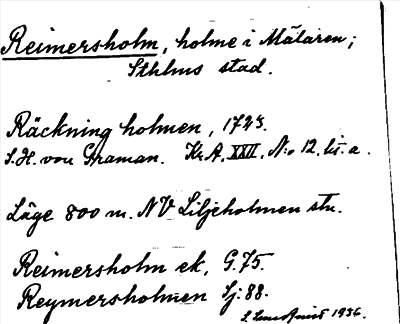 Reimersholm, holme i Mälaren;
Sthlms stad.
Räckning holmen, 1725.
S.H. von Graman. Kr.A. XXII, N:o 12. lit. a.
Läge 800 m. NV Liljeholmen stn.
Reimersholm ek, G.75.
Reymersholmen Sj:88.
1936.